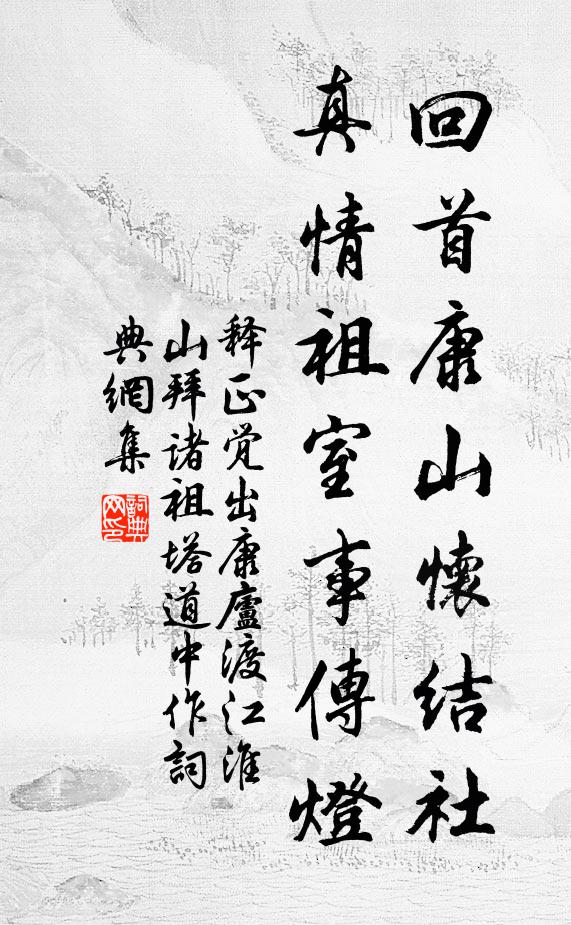 回首康山懷结社
真情祖室事傳燈
释正觉出康廬渡江淮
山拜诸祖塔道中作詞
典網集
詞典
网印